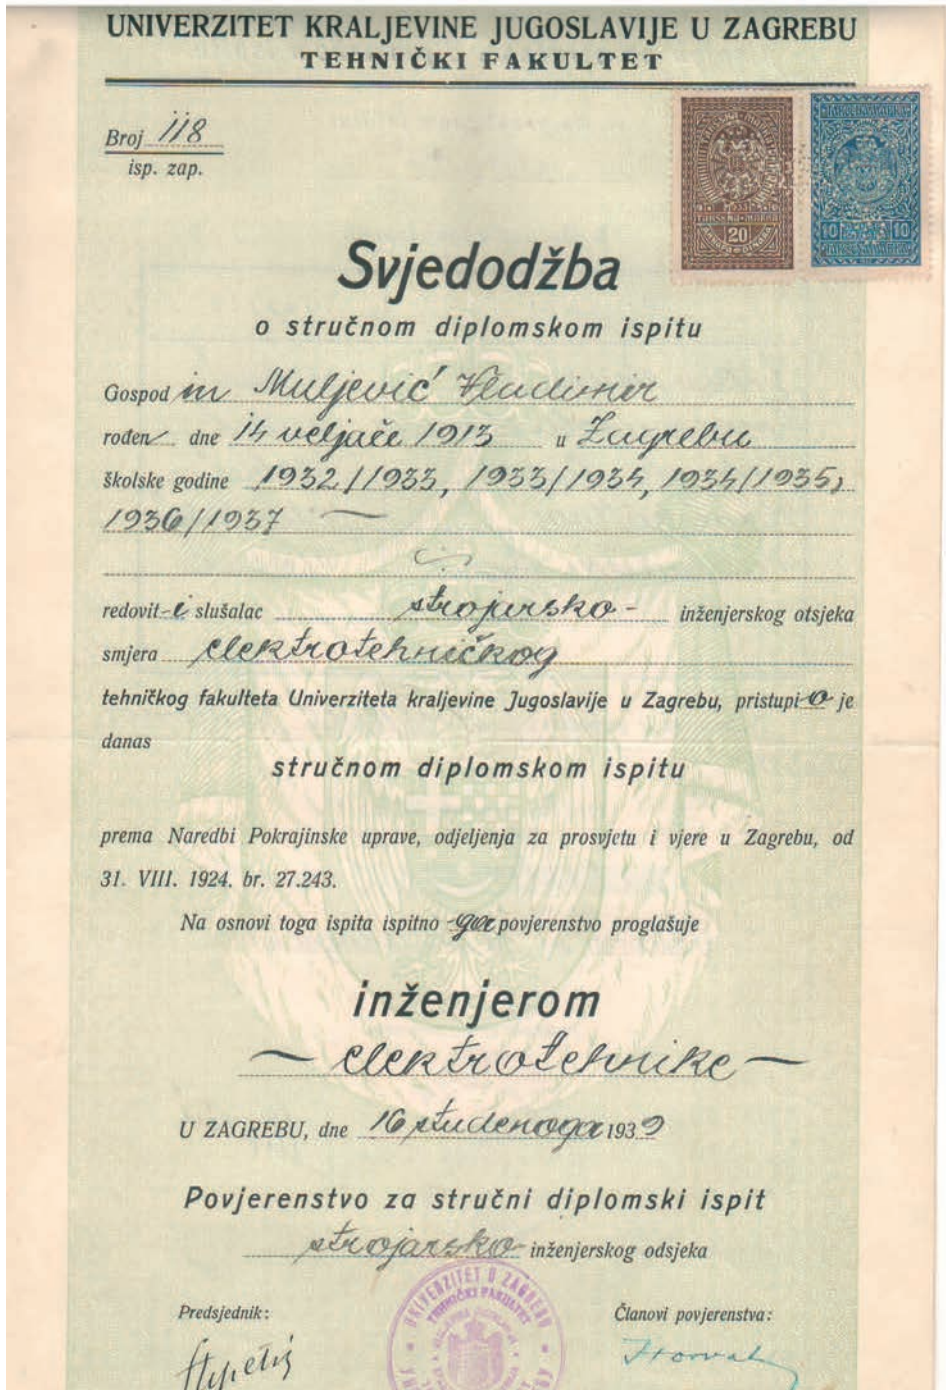 UNIVERZITET KRALJEVINE JUGOSLAVIJE U ZAGREBU
TEHNIČKI FAKULTET
Broj 118
isp. zap.
20
10 10
Svjedodžba
o stručnom diplomskom ispitu
Gospodin Muljević Vladimir
rođen dne 14 veljače 1913 u Zagrebu
školske godine 1932/1933, 1933/1934, 1934/1935,
1936/1937 —
redovit-i slušalac strojarsko- inženjerskog otsjeka
smjera elektrotehničkog
tehničkog fakulteta Univerziteta kraljevine Jugoslavije u Zagrebu, pristupio je
danas
stručnom diplomskom ispitu
prema Naredbi Pokrajinske uprave, odjeljenja za prosvjetu i vjere u Zagrebu, od
31. VIII. 1924. br. 27.243.
Na osnovi toga ispita ispitno -ga povjerenstvo proglašuje
inženjerom
— elektrotehnike —
U ZAGREBU, dne 16 studenoga 1939
Povjerenstvo za stručni diplomski ispit
strojarsko- inženjerskog odsjeka
UNIVERZITET U ZAGREBU
TEHNIČKI FAKULTET
Predsjednik: Članovi povjerenstva:
Horvat